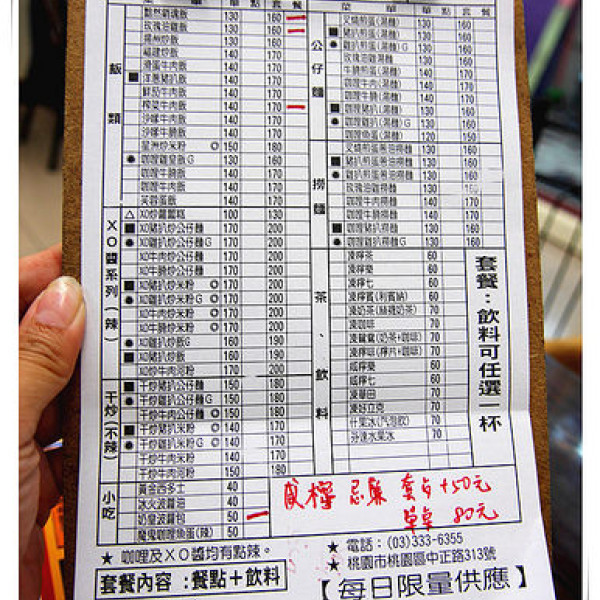 菜 單 單 點 套 餐
飯類
黯然銷魂飯 130 160
玫瑰油雞飯 130 160
揚州炒飯 130 160
福建炒飯 140 170
滑蛋牛肉飯 140 170
■ 洋蔥豬扒飯 140 170
鮮茄牛肉飯 140 170
榨菜牛肉飯 140 170
沙嗲牛肉飯 140 170
沙嗲牛腩飯 140 170
星洲炒米粉 ◎ 150 180
● 咖哩雞皇飯G 130 160
咖哩牛腩飯 140 170
咖哩牛肉飯 140 170
芙蓉蛋飯 140 170
XO醬系列(辣)
△ XO炒蘿蔔糕 100 130
■ XO豬扒炒公仔麵 170 200
● XO雞扒炒公仔麵G 170 200
XO牛肉炒公仔麵 170 200
XO牛腩炒公仔麵 170 200
■ XO豬扒炒米粉 ◎ 170 200
● XO雞扒炒米粉G ◎ 170 200
XO牛肉炒米粉 ◎ 170 200
XO牛腩炒米粉 ◎ 170 200
● XO雞扒炒飯G 160 190
■ XO豬扒炒飯 160 190
XO牛肉炒河粉 170 200
干炒(不辣)
■ 干炒豬扒公仔麵 150 180
● 干炒雞扒公仔麵G 150 180
干炒牛肉公仔麵 ◎ 150 180
■ 干炒豬扒米粉 ◎ 140 170
● 干炒雞扒米粉G ◎ 140 170
干炒牛肉米粉 140 170
干炒牛肉河粉 150 180
小吃
黃金西多士 40
冰火波蘿油 40
奶皇波蘿包 50
魔鬼咖哩魚蛋(辣) 50
菜 單 單 點 套 餐
公仔麵
叉燒煎蛋(湯麵) 130 160
■ 豬扒煎蛋(湯麵) 130 160
● 雞扒煎蛋(湯麵)G 130 160
玫瑰油雞(湯麵) 130 160
牛腩煎蛋(湯麵) 140 170
咖哩牛肉(湯麵) 140 170
咖哩牛腩(湯麵) 140 170
■ 咖哩豬扒(湯麵) 130 160
● 咖哩雞扒(湯麵)G 130 160
咖哩魚蛋(湯麵) 120 150
撈麵
叉燒煎蛋蔥油撈麵 130 160
■ 豬扒煎蛋蔥油撈麵 130 160
● 雞扒煎蛋蔥油撈麵G 130 160
玫瑰油雞撈麵 130 160
咖哩牛腩撈麵 140 170
咖哩牛肉撈麵 140 170
■ 咖哩豬扒撈麵 130 160
● 咖哩雞扒撈麵G 130 160
茶、飲料
凍檸茶 60
凍檸樂 60
凍檸七 60
凍檸賓(利賓納) 70
凍奶茶(絲襪奶茶) 70
凍咖啡 70
凍鴛鴦(奶茶+咖啡) 70
凍檸啡(檸片+咖啡) 70
咸檸樂 70
咸檸七 70
凍華田 70
凍好立克 70
什果冰(汽泡飲) 70
芬達水果冰 70
套餐:飲料可任選一杯
套 +50元
單 80元
★ 咖哩及XO醬均有點辣。
套餐內容:餐點+飲料
★ 電話:(03)333-6355
★ 桃園市桃園區中正路313號
【每日限量供應】